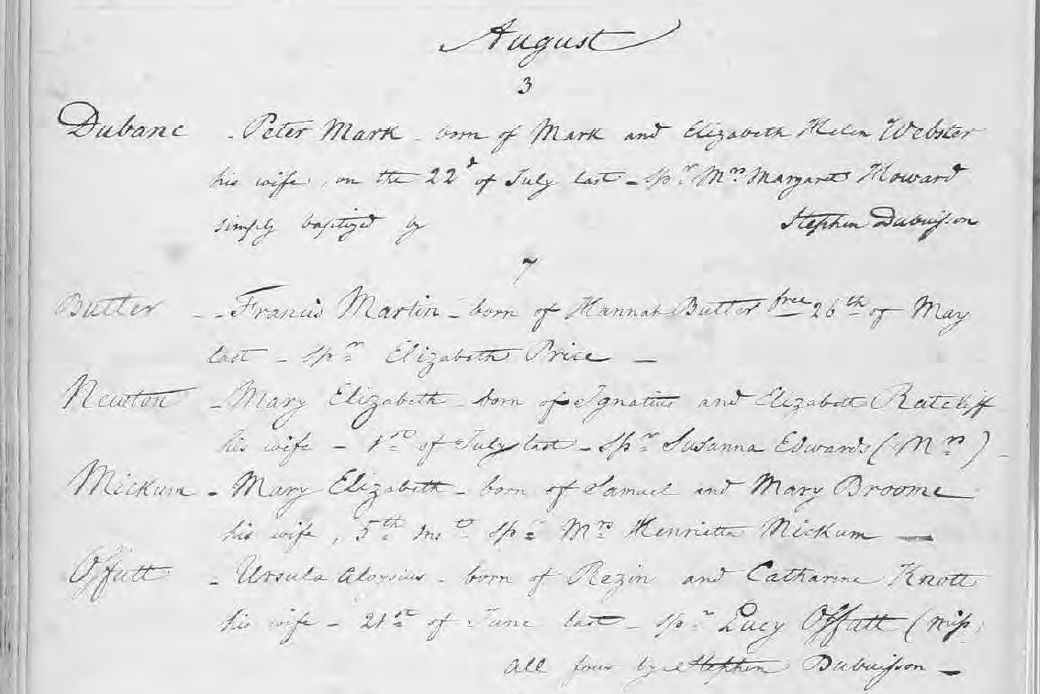 August
3
Dubanc - Peter Mark - born of Mark and Elizabeth Helen Webster
his wife, on the 22d of July last - spr Mrs Margaret Howard
simply baptized by Stephen Dubuisson
7
Butler - - Francis Martin - born of Hannah Butler free 26th of May
last - spr Elizabeth Price -
Newton - Mary Elizabeth - born of Ignatius and Elizabeth Ratcliff
his wife - 1st of July last - spr Susanna Edwards (Mrs) -
Mickum - Mary Elizabeth - born of Samuel and Mary Broome
his wife, 5th inst spr Mrs Henrietta Mickum -
Offutt - Ursula Aloysius - born of Rezin and Catharine Knott
his wife - 21st of June last - spr Lucy Offutt (Miss)
all four by Stephen Dubuisson -